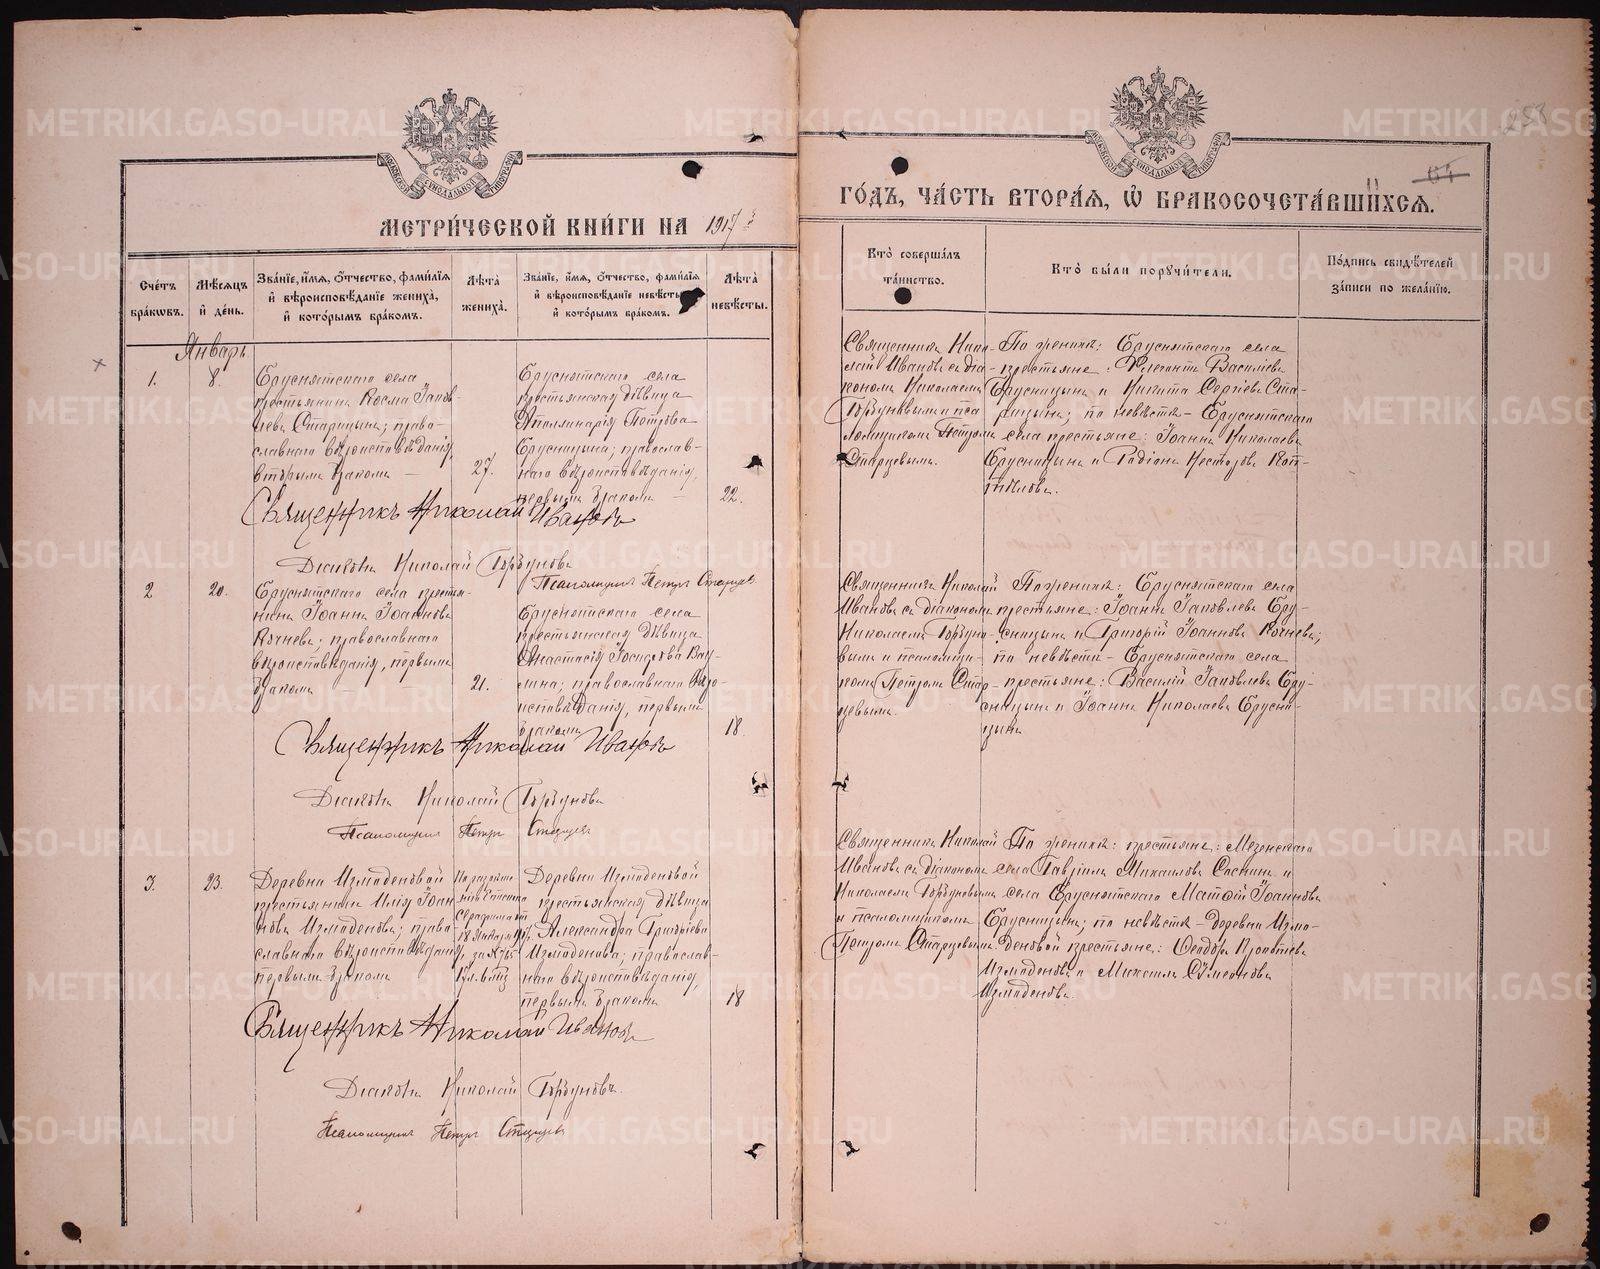 258
МОСКОВСКОЙ СѴНОДАЛЬНОЙ ТИПОГРАФІИ
МОСКОВСКОЙ СѴНОДАЛЬНОЙ ТИПОГРАФІИ
МЕТРИ́ЧЕСКОЙ КНИ́ГИ НА 1917 й
ГО́ДЪ, ЧА́СТЬ ВТОРА́Я, Ѿ БРАКОСОЧЕТА́ВШИХСЯ.
Сче́тъ бра́кωвъ.
Мѣ́сяцъ и҆ де́нь.
Зва́нїе, и҆́мя, ѻ҆́тчество, фами́лїя и҆ вѣроисповѣ́данїе жениха̀, и҆ кото́рымъ бра́комъ.
Лѣ́та жениха̀.
Зва́нїе, и҆́мя, ѻ҆́тчество, фами́лїя и҆ вѣроисповѣ́данїе невѣ́сты и҆ кото́рымъ бра́комъ.
Лѣ́та невѣ́сты.
Кто̀ соверша́лъ та́инство.
Кто̀ бы́ли порꙋчи́тели.
По́дпись свидѣ́телей за́писи по жела́нїю.
Январь
1.
8.
Бруснятскаго села
крестьянинъ Косма Іаков-
левъ Старицынъ; право-
славнаго вѣроисповѣданія,
вторымъ бракомъ —
27.
Бруснятскаго села
крестьянская дѣвица
Аполлинарія Петрова
Брусницына; православ-
наго вѣроисповѣданія,
первымъ бракомъ —
22.
Священникъ Нико-
лай Ивановъ съ діа-
кономъ Николаемъ
Горбуновымъ и пса-
ломщикомъ Петромъ
Старцевымъ.
По женихѣ: Бруснятскаго села
крестьяне: Флегонтъ Василіевъ
Брусницынъ и Никита Сергіевъ Ста-
рицынъ; по невѣстѣ — Бруснятскаго
села крестьяне: Іоаннъ Николаевъ
Брусницынъ и Родіонъ Несторовъ Коп-
тѣловъ.
Священникъ Николай Ивановъ
Діаконъ Николай Горбуновъ
Псаломщикъ Петръ Старцевъ.
2
20.
Бруснятскаго села кресть-
янинъ Іоаннъ Іоанновъ
Кочневъ; православнаго
вѣроисповѣданія, первымъ
бракомъ — —
21.
Бруснятскаго села
крестьянская дѣвица
Анастасія Іосифова Ва
лина; православнаго вѣро-
исповѣданія, первымъ
бракомъ
18.
Священникъ Николай
Ивановъ съ діакономъ
Николаемъ Горбуно-
вымъ и псаломщи-
комъ Петромъ Стар-
цевымъ.
По женихѣ: Бруснятскаго села
крестьяне: Іоаннъ Іаковлевъ Бру-
сницынъ и Григорій Іоанновъ Кочневъ;
по невѣстѣ — Бруснятскаго села
крестьяне: Василій Іаковлевъ Бру-
сницынъ и Іоаннъ Николаевъ Брусни-
цынъ
Священникъ Николай Ивановъ
Діаконъ Николай Горбуновъ
Псаломщикъ Петръ Старцевъ
3.
23.
Деревни Измоденовой
крестьянинъ Илія Іоан
новъ Измоденовъ; право-
славнаго вѣроисповѣданія,
первымъ бракомъ
По разрѣше-
нію Епископа
Серафима отъ
18 Января 1917 г.
за №
17 лѣтъ
Деревни Измоденовой
крестьянская дѣвица
Александра Григоріева
Измоденова; православ-
наго вѣроисповѣданія,
первымъ бракомъ
18
Священникъ Николай
Ивановъ съ діакономъ
Николаемъ Горбуновымъ
и псаломщикомъ
Петромъ Старцевымъ.
По женихѣ: крестьяне: Мезенскаго
села Гавріилъ Михаиловъ Соснинъ и
села Бруснятскаго Матѳій Іоанновъ
Брусницынъ; по невѣстѣ — деревни Измо-
деновой крестьяне: Ѳеодоръ
Измоденовъ и Михаилъ Сѵмеоновъ
Измоденовъ.
Священникъ Николай Ивановъ
Діаконъ Николай Горбуновъ.
Псаломщикъ Петръ Старцевъ
METRIKI.GASO-URAL.RU